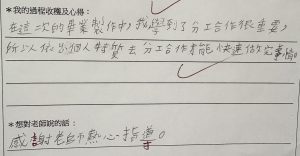 *我的過程收穫及心得:
在這次的畢業製作中,我學到了分工合作很重要,
所以依照個人特質去分工合作才能快速做完事情。
*想對老師說的話:
感謝老師熱心指導。